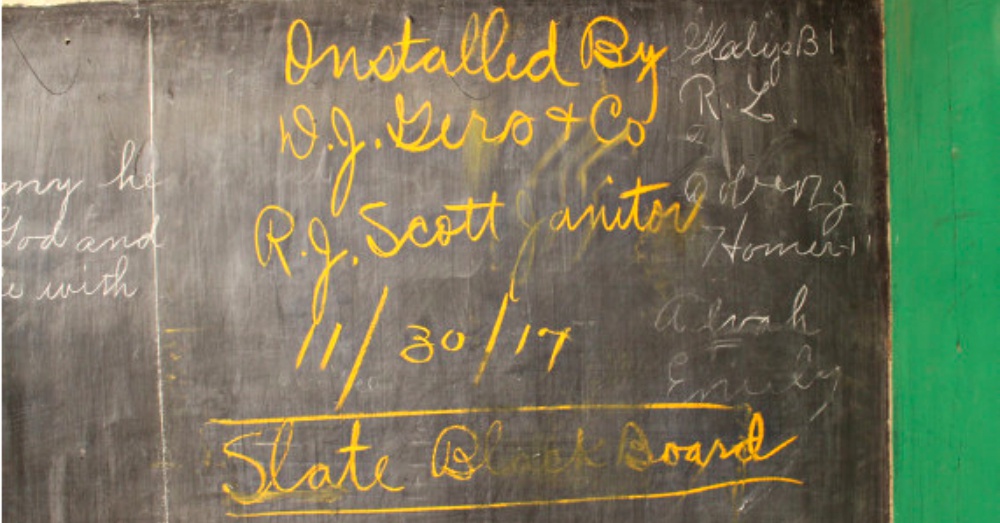 Installed By
D.J. Gero & Co
R.J. Scott Janitor
11/30/17
Slate Black Board
my he
God and
with
R.L.
Homer
Alvah
Emily